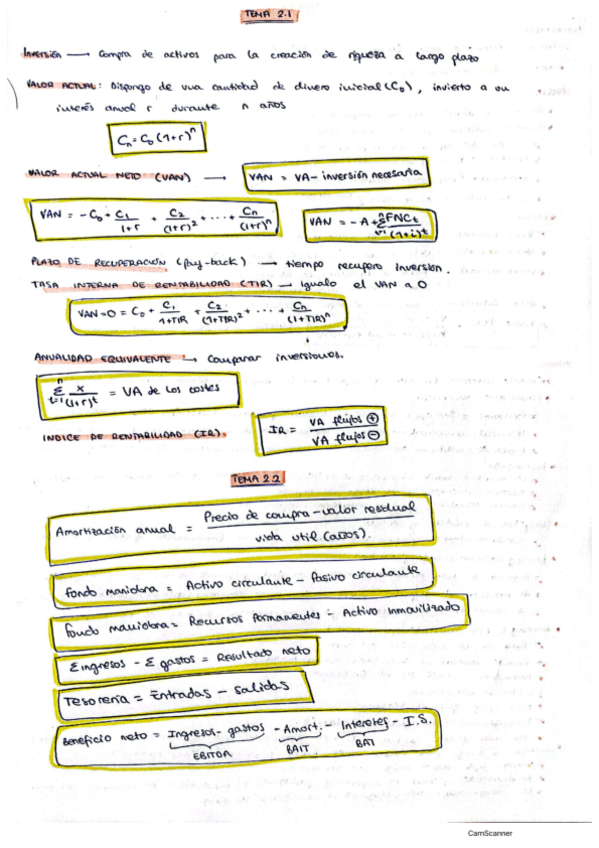 TEMA 2.1
INVERSIÓN → Compra de activos para la creación de riqueza a largo plazo
VALOR ACTUAL: Dispongo de una cantidad de dinero inicial (C₀), invierto a un
interés anual r durante n años
Cn = C₀ (1+r)^n
VALOR ACTUAL NETO (VAN) → VAN = VA - inversión necesaria
VAN = -C₀ + C₁/1+r + C₂/(1+r)² + ... + Cn/(1+r)^n VAN = -A + Σ(t=1, n) FNCt/(1+i)^t
PLAZO DE RECUPERACIÓN (pay-back) → tiempo recupero inversión.
TASA INTERNA DE RENTABILIDAD (TIR) → Igualo el VAN a 0
VAN=0 = C₀ + C₁/1+TIR + C₂/(1+TIR)² + ... + Cn/(1+TIR)^n
ANUALIDAD EQUIVALENTE → Comparar inversiones.
Σ(t=1, n) x/(1+r)^t = VA de los costes
INDICE DE RENTABILIDAD (IR). IR = VA flujos ⊕/VA flujos ⊖
TEMA 2.2
Amortización anual = Precio de compra - valor residual/vida util (años).
Fondo maniobra = Activo circulante - Pasivo circulante
Fondo maniobra = Recursos permanentes - Activo inmovilizado
Σ ingresos - Σ gastos = Resultado neto
Tesorería = Entradas - salidas
Beneficio neto = Ingresos - gastos - Amort. - Intereses - I.S.
EBITDA BAIT BAT
CamScanner